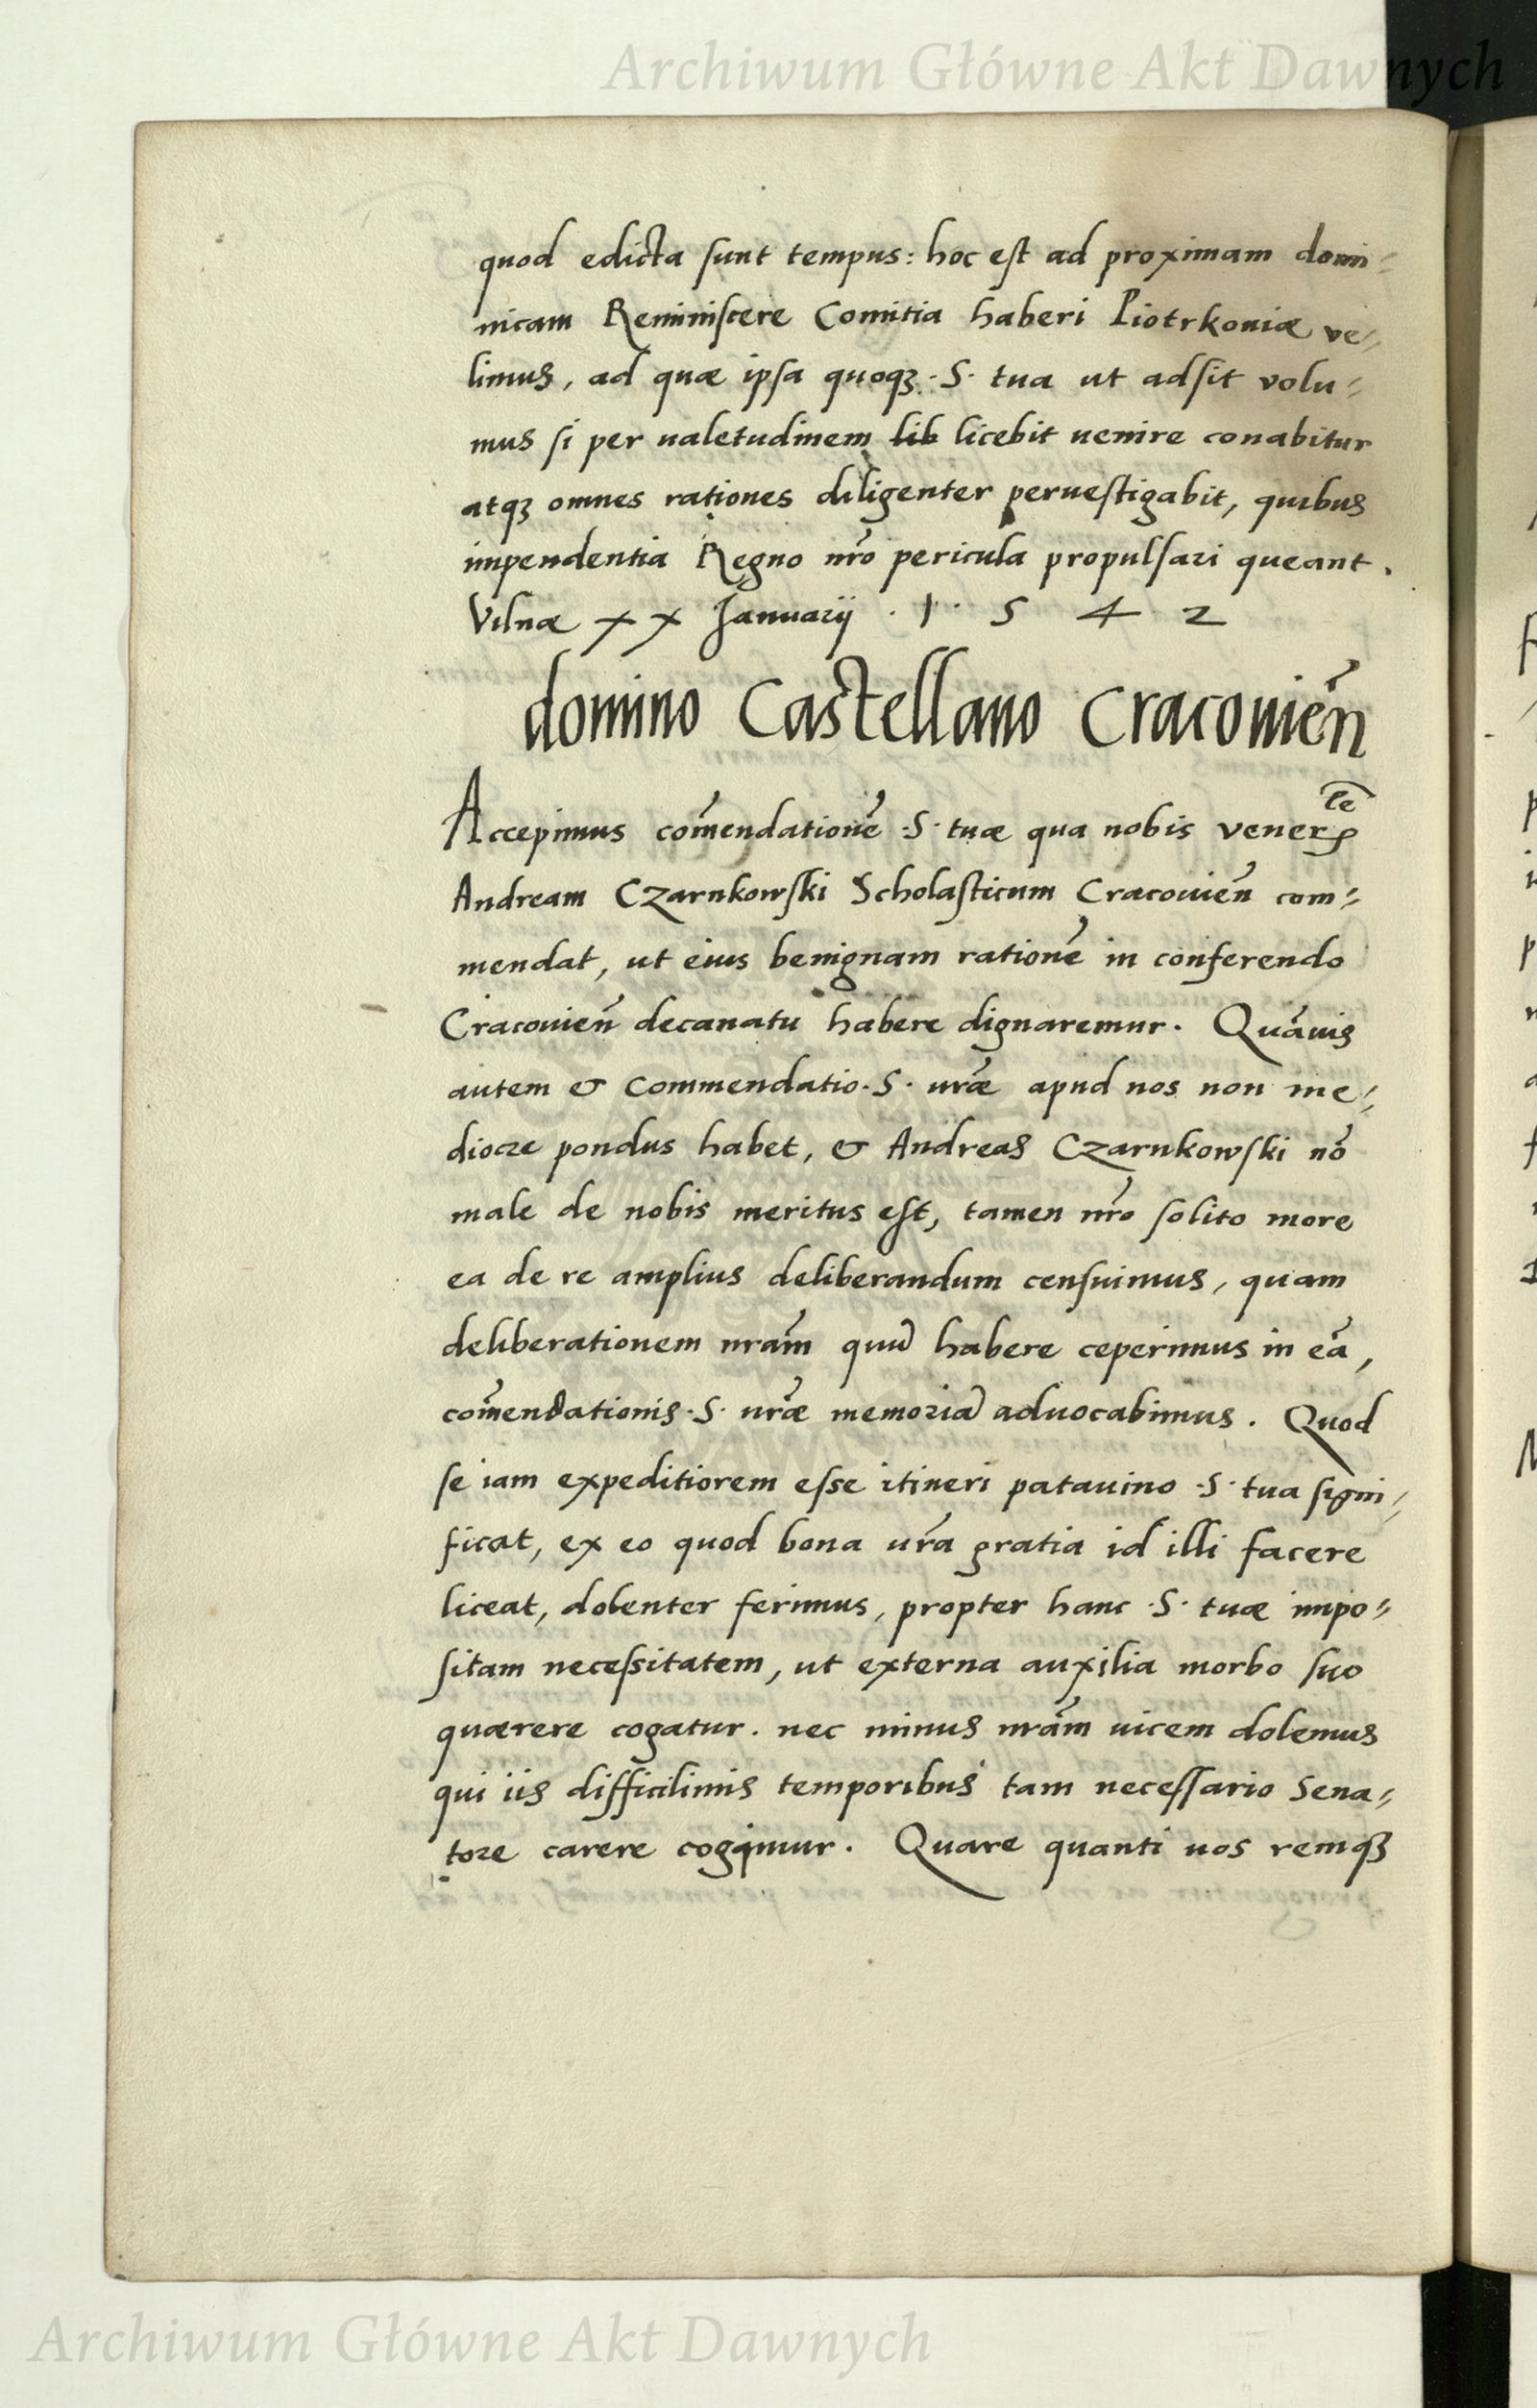 Archiwum Główne Akt Dawnych
quod edicta sunt tempus: hoc est ad proximam domi-
nicam Reminiscere Comitia haberi Piotrkoniæ ve-
limus, ad quæ ipsa quoqꝫ ·S· tua ut adsit volu-
mus si per ualetudinem lib licebit uenire conabitur
atqꝫ omnes rationes diligenter peruestigabit, quibus
impendentia Regno nr̃o pericula propulsari queant.
Vilnæ xx Januarij ·1·5 4 2
domino Castellano Cracouien̄
Accepimus com̄endationē ·S· tuæ qua nobis venerꝑ le
Andream Czarnkowski Scholasticum Cracouien̄ com-
mendat, ut eius benignam rationē in conferendo
Cracouien̄ decanatu habere dignaremur. Quāuis
autem & commendatio ·S· ur̃æ apud nos non me-
diocre pondus habet, & Andreas Czarnkowski nō
male de nobis meritus est, tamen nr̃o solito more
ea de re amplius deliberandum censuimus, quam
deliberationem nrām quū habere ceperimus in eā,
com̄endationis ·S· ur̃æ memoriā aduocabimus. Quod
se iam expeditiorem esse itineri patauino ·S· tua signi-
ficat, ex eo quod bona ur̃a gratia id illi facere
liceat, dolenter ferimus, propter hanc ·S· tuæ impo-
sitam necessitatem, ut externa auxilia morbo suo
quærere cogatur. nec minus nrām uicem dolemus
qui iis difficilimis temporibus tam necessario Sena-
tore carere cogimur. Quare quanti uos remqꝫ
Archiwum Główne Akt Dawnych